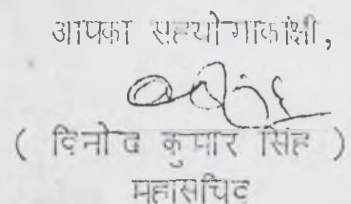 आपका सहयोगाकांक्षी,
( विनोद कुमार सिंह )
महासचिव